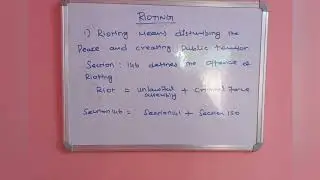 RIOTING
1) Rioting means disturbing the
Peace and creating Public
Section: 146 defines the offence of
Rioting
Riot = unlawful assembly + Criminal Force
Section 146 = Section 141 + Section 350